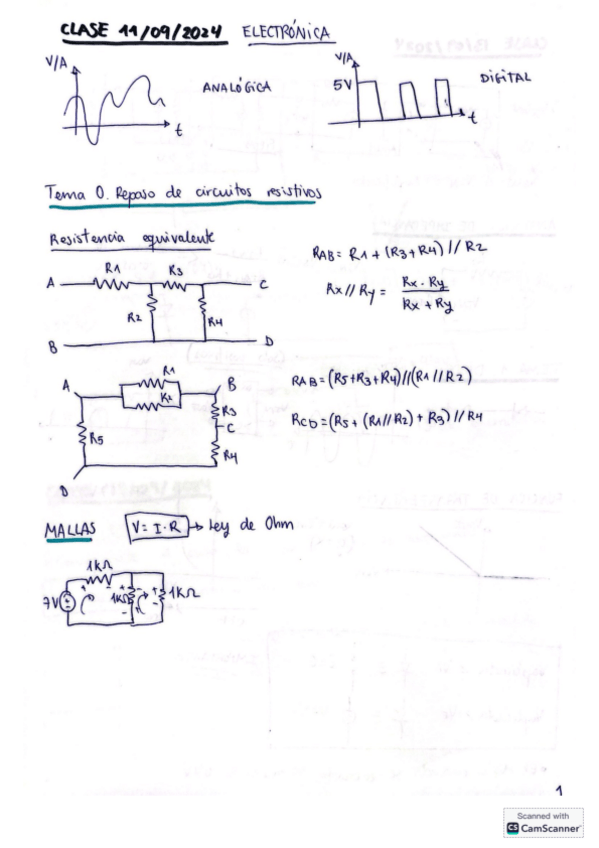 CLASE 11/09/2024 ELECTRÓNICA
V/A
t
ANALÓGICA
V/A
5V
t
DIGITAL
Tema 0. Repaso de circuitos resistivos
Resistencia equivalente
A R1 R3 C
R2 R4
B D
RAB = R1 + (R3+R4) // R2
Rx // Ry = Rx · Ry
Rx + Ry
A R1 B
R2
R3
C
R5
R4
D
RAB = (R5+R3+R4)//(R1//R2)
RCD = (R5 + (R1//R2) + R3) // R4
MALLAS V = I·R → Ley de Ohm
1kΩ
7V + - + - 1kΩ - + + - 1kΩ
1
Scanned with
CS CamScanner